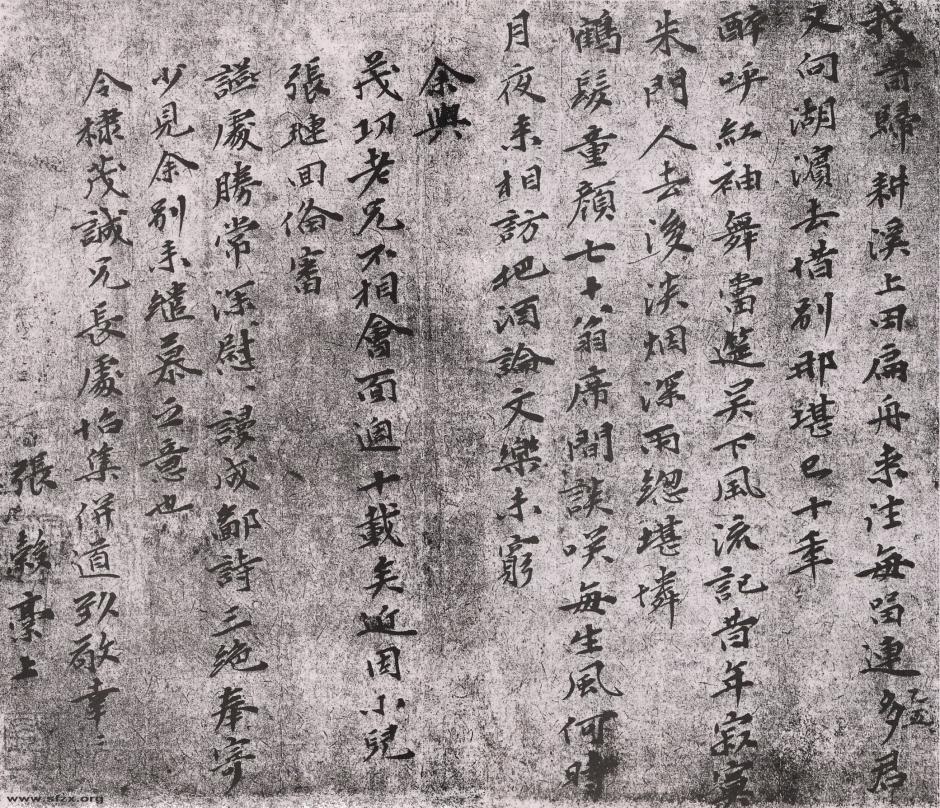 我昔歸耕溪上田扁舟來往每留連多君
又向湖濱去惜別那堪已十年
醉呼紅袖舞當筵吴下風流記昔年寂寞
朱門人去後淡烟深雨緫堪憐
鶴髮童顔七十翁席間談笑每生風何時
月夜来相訪把酒論文樂未窮
余與
茂功老兄不相會面迨十載矣近因小兒
張璉回備審
譩處勝常深慰謾成鄙詩三絶奉寄
少見余別来繾慕之意也
令棣茂誠兄長處怡集併道致敬幸〻
張 稾上
www.sfzx.org